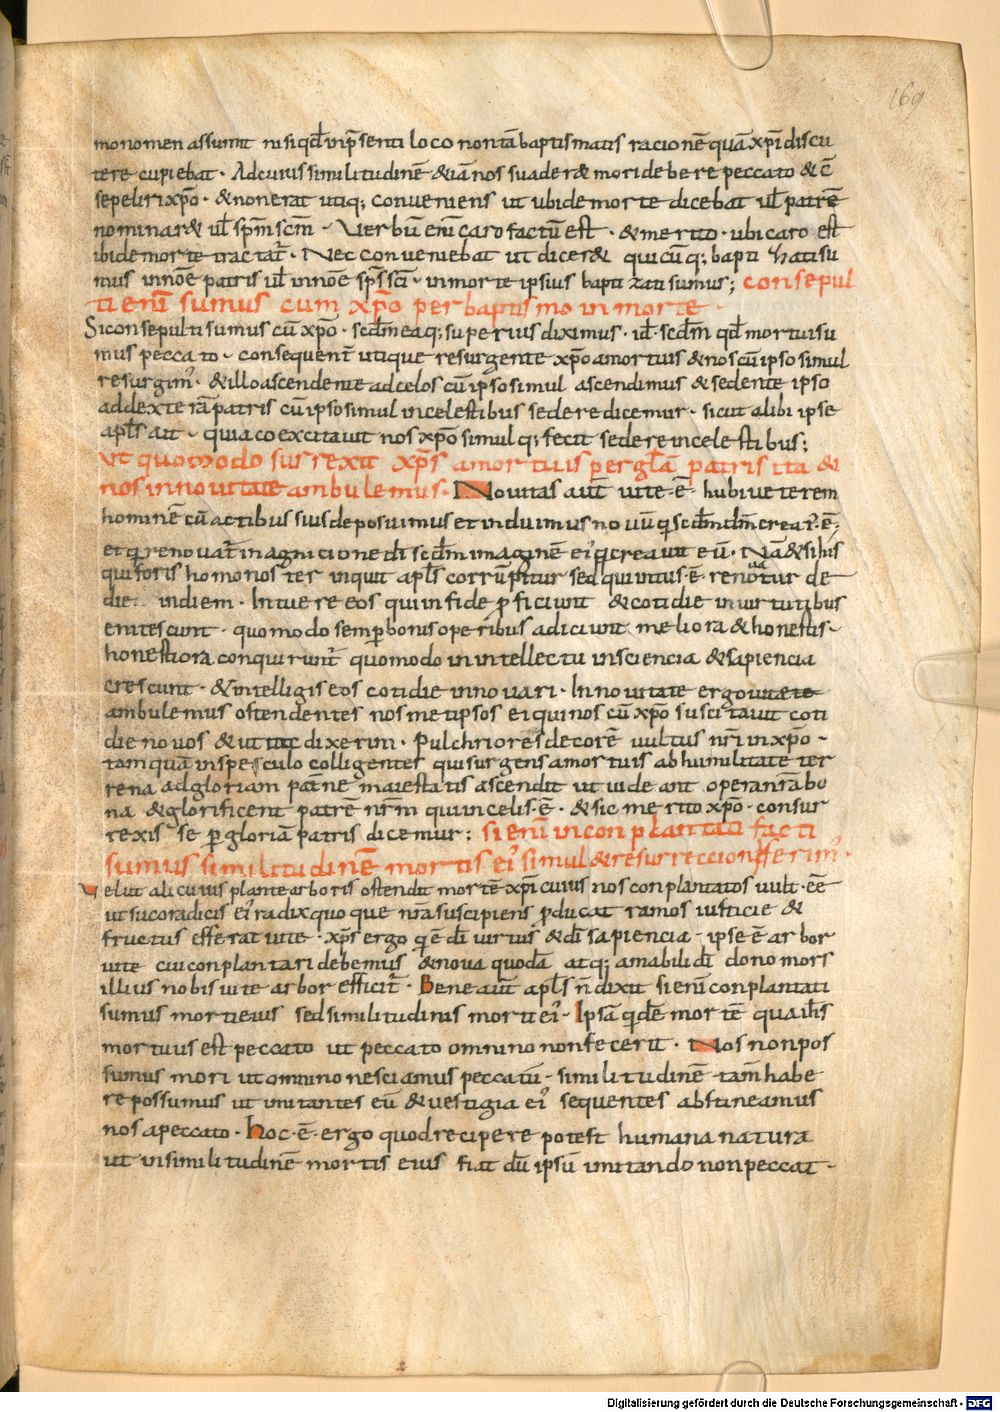 169
monomen assumit nisi qđ inp̄senti loco non tā baptismatis racionē quā xp̄i discu
tere cupiebat · Ad cuius similitudinē &iā nos suader& mori debere peccato & c̄
sepeliri xp̄o · & non erat utiq; conveniens ut ubi de morte dicebat ul̄ patrē
nominar& ul̄ sp̄m sc̄m · Verbū eni̅ caro factū est · & merito · ubi caro est
ibi de morte tractat̄ · Nec conveniebat ut dicer& quicū q; bapti zati su
mus in noē patris ul̄ in noē sp̄s sc̄i · in morte ipsius bapti zati sumus; consepul
ti eni̅ sumus cum xp̄o per baptismo in morte ·
Si consepulti sumus cū xp̄o · scd̄m ea q; superius diximus · id̄ · scd̄m qđ mortui su
mus peccato · consequent̄ utique resurgente xp̄o a mortuis & nos cū ipso simul
resurgim᾽ · & illo ascendente ad celos cū ipso simul ascendimus & sedente ipso
ad dexterā patris cū ipso simul in celestibus sedere dicemur · sicut alibi ipse
apl̄s ait · quia coexcitavit nos xp̄o simul q; fecit sedere in celestibus;
Ut quomodo surrexit xp̄s a mortuis per glā patris ita &
nos in novitate ambulemus · Novitas aut̄ vite · ē · hubi veterem
hominē cū actibus suis deposuimus et induimus novū q̄ scd̄m dm̄ creat᾽ · ē ·
et q̄ renovat̄ in agnicione di̅ scd̄m imaginē ei᾽ q̄ creavit eū · Nā & si his
qui foris homo noster inquit apl̄s corrūpitur sed qui intus · ē · renovatur de
die in diem · Intuere eos qui in fide p̄ficiunt & cotidie in virtutibus
enitescunt · quomodo semp̄ bonis operibus adiciunt meliora & honestis ·
honestiora conquirunt̄ quomodo in intellectu in sciencia & sapiencia
crescunt · & intelligis eos cotidie innovari · In novitate ergo vite
ambulemus ostendentes nos metipsos ei qui nos cū xp̄o suscitavit coti
die novos & ut ita dixerim · Pulchriores decorē vultus nr̄i in xp̄o ·
tamquā in speculo colligentes qui surgens a mortuis ab humilitate ter
rena ad gloriam pat̄ne maiestatis ascendit ut videant opera nr̄a bo
na & glorificent patrē nr̄m qui in celis · ē · & sic merito xp̄o · consur
rexisse p̄ gloriā patris dicemur; si eni̅ in conplantati facti
sumus similitudinē mortis ei᾽ simul & resurreccionis erim᾽ ·
Velut alicuius plante arboris ostendit mortē xp̄i cuius nos conplantatos vult · eē
ut suco radicis ei᾽ radix quoque nr̄a suscipiens p̄ducat ramos iusticie &
fructus efferat vite · xp̄s ergo q̄ ē di̅ virtus & di̅ sapiencia · ipse ē arbor
vite cui conplantari debemus & nova quodā atq; amabili di̅ dono mors
illius nobis vite arbor efficit̄ · Bene aut̄ apl̄s n̄ dixit si eni̅ conplantati
sumus morti eius sed similitudinis morti ei᾽ · Ipsā q̄dē mortē qua ihs̄
mortuus est peccato ut peccato omnino non fecerit · Nos non pos
sumus mori ut omnino nesciamus peccatū · similitudinē tam̄ habe
re possumus ut imitantes eū & vestigia ei᾽ sequentes abstineamus
nos a peccato · hoc · ē · ergo quod recipere potest humana natura
ut in similitudinē mortis eius fiat dū ipsū imitando non peccat ·
Digitalisierung gefördert durch die Deutsche Forschungsgemeinschaft - DFG